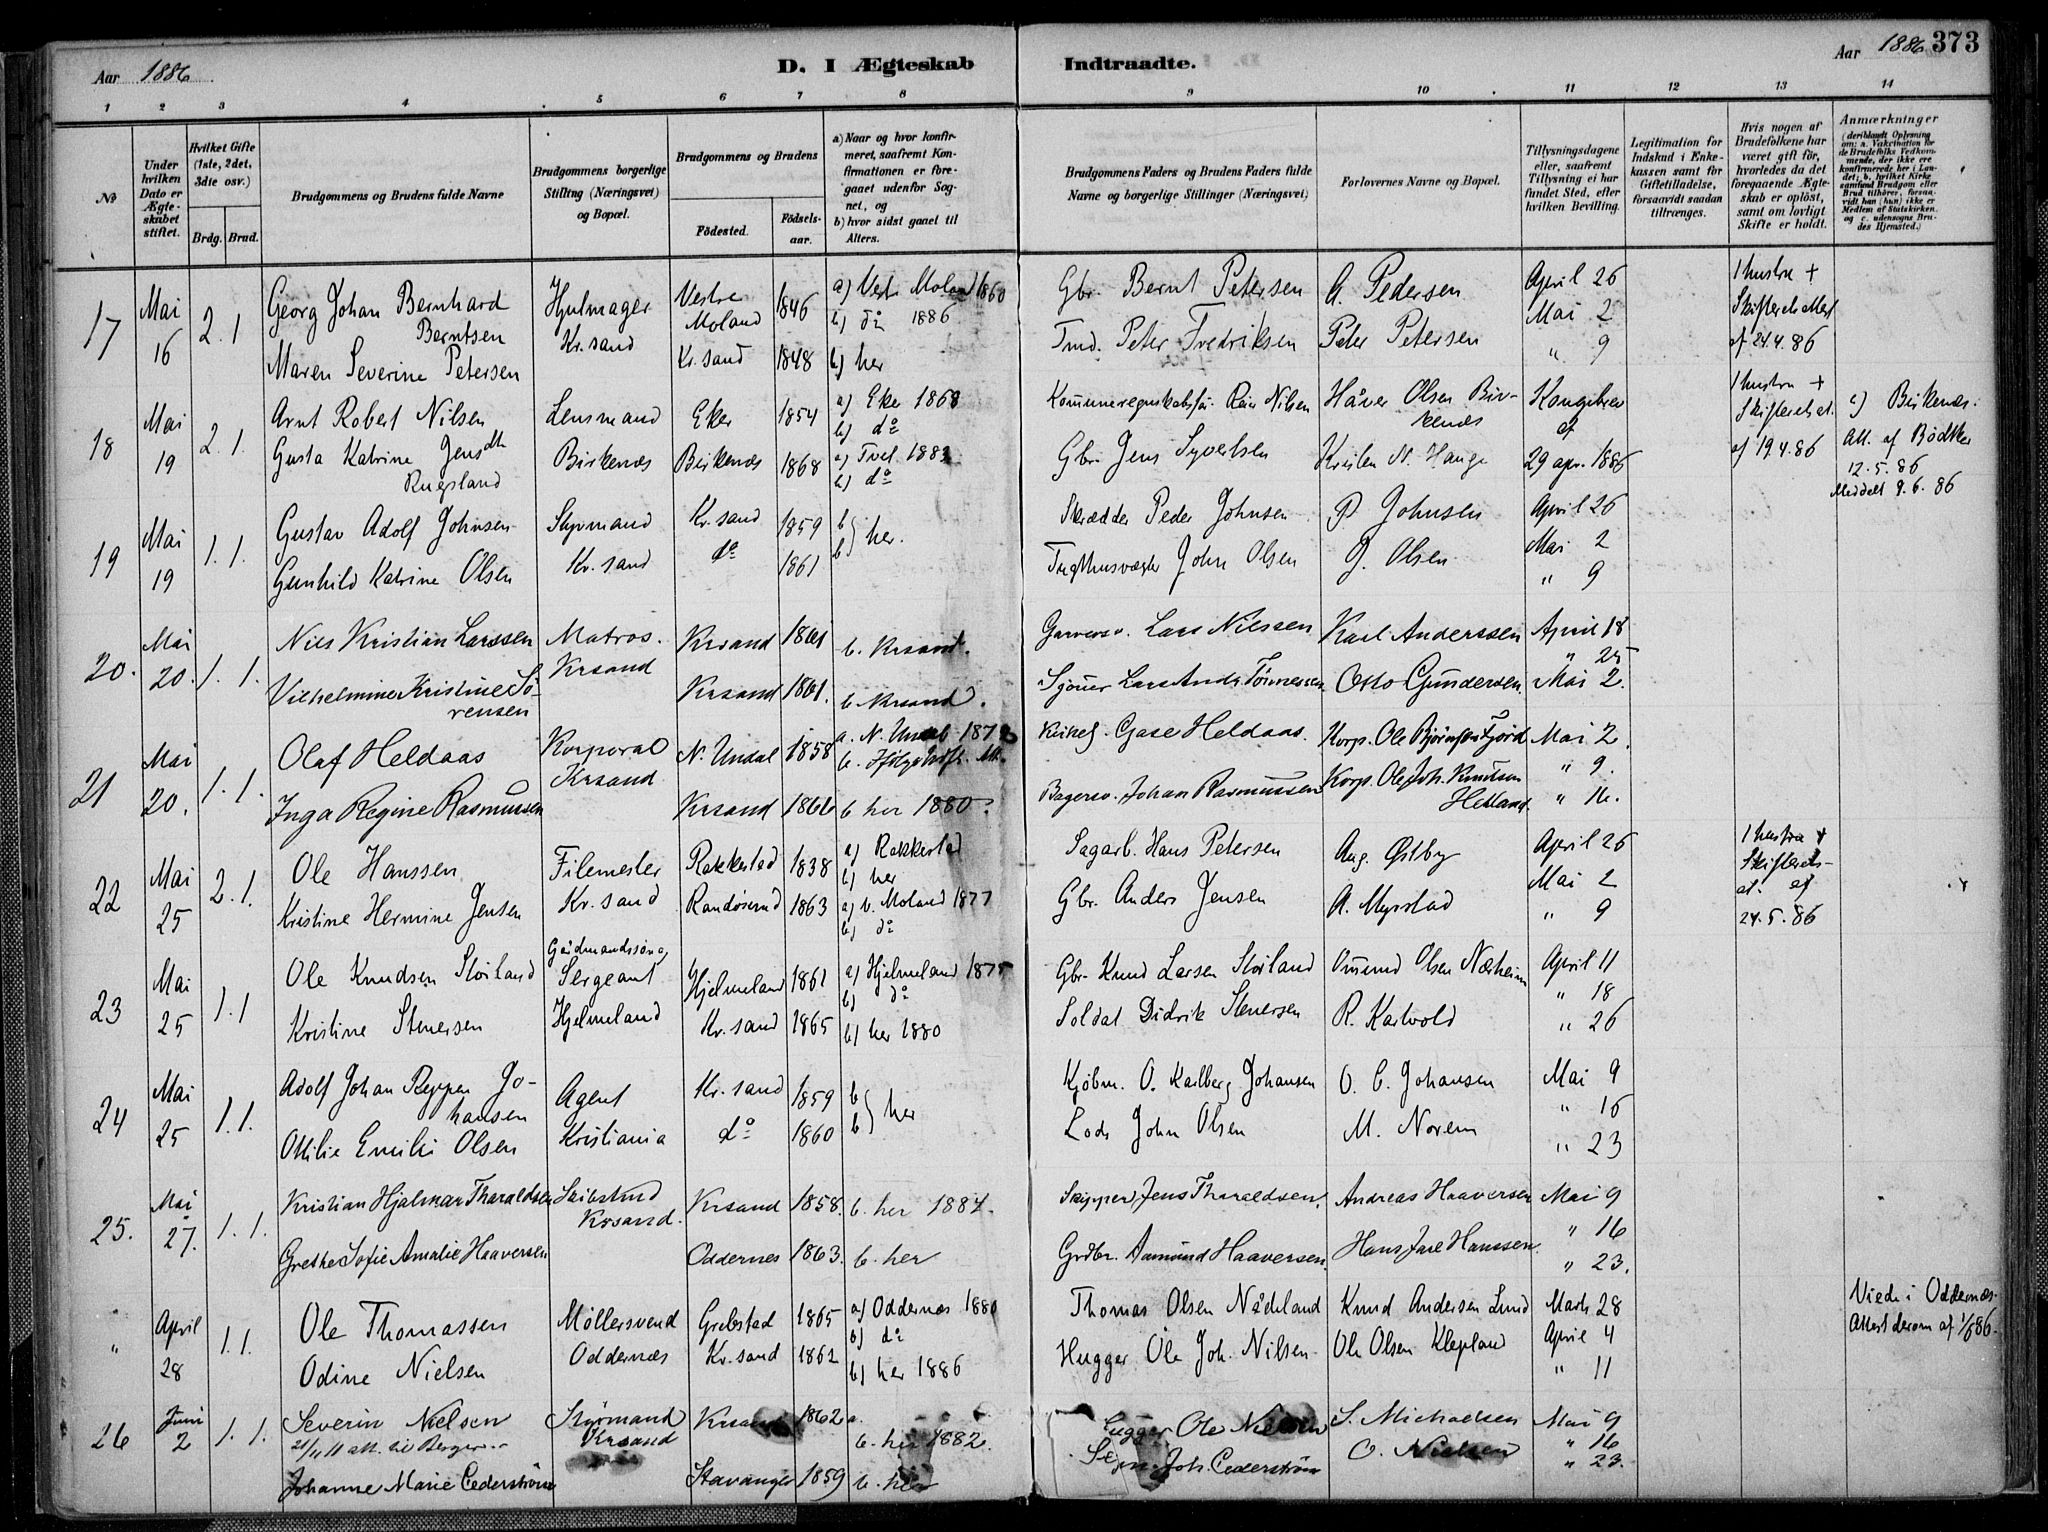 Aar 1886. D. I Ægteskab Indtraadte. Aar 1886 373
1 2 3 4 5 6 7 8 9 10 11 12 13 14
No
Under hvilken Dato er Ægteskabet stiftet.
Hvilket Gifte (1ste, 2det, 3die osv.)
Brdg. Brud.
Brudgommens og Brudens fulde Navne
Brudgommens borgerlige Stilling (Næringsvei) og Bopæl.
Brudgommens og Brudens
Födested. Födselsaar.
a) Naar og hvor konfirmeret, saafremt Konfirmationen er foregaaet udenfor Sognet, og
b) hvor sidst gaaet til Alters.
Brudgommens Faders og Brudens Faders fulde Navne og borgerlige Stillinger (Næringsvei)
Forlovernes Navne og Bopæl.
Tillysningsdagene eller, saafremt Tillysning ei har fundet Sted, efter hvilken Bevilling.
Legitimation for Indskud i Enkekassen samt for Giftetilladelse, forsaavidt saadan tiltrænges.
Hvis nogen af Brudefolkene har været gift för, hvorledes da det foregaaende Ægteskab er oplöst, samt om lovligt Skifte er holdt.
Anmærkninger (deriblandt Oplysning om: a. Vaksination for de Brudefolks Vedkommende, der ikke ere konfirmerede her i Landet; b. hvilket Kirkesamfund Brudgom eller Brud tilhörer, forsaavidt han (hun) ikke er Medlem af Statskirken, og c. udensogns Brudes Hjemsted.)
17 Mai 16 2. 1 Georg Johan Bernhard Berntsen Hjulmager Kr.sand Vestre Moland 1846 a) Vest. Moland 1860 b) do 1886 Gbr. Bernt Petersen A. Pedersen April 26 1 hustru +
Maren Severine Petersen Kr.sand 1848 b) her Tmd. Peter Fredriksen Peter Petersen Mai 2 " 9 af 24.4.86
18 Mai 19 2. 1. Arnt Robert Nilsen Lensmand Birkenæs Eker 1854 a) Eker 1868 b) do Nilsen Håver Olsen Birkenæs Kongebrev af 29 apr. 1886 1 hustru + af 19.4.86 c) Birkenæs.
Gusta Katrine Jensdtr Rugsland Birkenæs 1868 a) Tvet 1882 b) do Gbr. Jens Syvertsen Kristen N. Hauge Att. af Bødtker 12.5.86 Meddelt 9.6.86
19 Mai 19 1. 1. Gustav Adolf Johnsen Styrmand Kr.sand Kr.sand 1859 b} her. Skrædder Peder Johnsen P Johnsen April 26
Gunhild Katrine Olsen do 1861 b} Tugthusvægter John Olsen J. Olsen Mai 2 " 9
20. Mai 20. 1. 1. Nils Kristian Larssen Matros. Krsand Krsand 1861 b. Krsand. Garversv. Lars Nilssen Karl Anderssen April 18 " 25
Vilhelmine Kristine Sörensen Krsand 1861. b. Krsand. Otto Gundersen. Mai 2.
21 Mai 20. 1. 1. Olaf Heldaas Korporal Krsand N. Undal 1858 a. N. Undal Heldaas. Korp. Ole Björnsen Fjord Mai 2.
Inga Regine Rasmussen Krsand 1866 b her 1880. Bagersv. Johan Rasmussen Korp. Ole Joh. Knudsen Hetland. " 9. " 16.
22 Mai 25 2. 1. Ole Hanssen Filemester Kr.sand Rakkestad 1838 a) Rakkestad b) her Sagarb. Hans Petersen Aug. Østby April 26 1 hustru +
Kristine Hermine Jensen Randøsund 1863 a) V. Moland 1877 b) do Gbr. Anders Jensen A. Myrstad Mai 2 " 9 Skifteretsat. af 24.5.86
23 Mai 25 1. 1 Ole Knudsen Stöiland Gaardmandssøn, Sergeant Hjelmeland Hjelmeland 1861 a) Hjelmeland 1875 b) do Gbr. Knud Larsen Stöiland Omund Olsen Nærheim April 11
Kristine Stenersen Kr.sand 1865 b) her 1880 Soldat Didrik Stenersen R. Kartvold " 18 " 26
24 Mai 25 1. 1. Adolf Johan Reppen Johansen Agent Kristiania Kr.sand 1859 b} her Kjöbm. O. Karlberg Johansen O. C. Johansen Mai 9
Ottilie Emilie Olsen do 1860 b} Lods John Olsen M. Norem " 16 " 23
25. Mai 27. 1. 1. Kristian Hjalmar Tharaldsen Krsand. Krsand 1858. b. her 1884. Skipper Jens Tharaldsen. Andreas Haaversen Mai 9
Grethe Sofie Amalie Haaversen Oddernes 1863. b. her Grdbr. Aamund Haaversen. Hans Jare Hanssen. " 16 " 23.
" April 28 1. 1. Ole Thomassen Møllersvend Oddernæs Grebstad 1865 a) Oddernæs 1880 b) do Thomas Olsen Nådeland Knud Andersen Lund Marts 28 Viede i Oddernæs.
Odine Nielsen Kr.sand 1862 b) her 1886 Hugger Ole Joh. Nilsen Ole Olsen Klepland April 4 " 11 Attest derom af 1/6 86.
26 Juni 2 1. 1. Severin Nielsen Styrmand Krsand Krsand 1862 a. b. her 1882. Hugger Ole Nielsen S. Michaelsen Mai 9
Johanne Marie Cederström Stavanger 1859 b. her Joh. Cederström O. Nielsen " 16 " 23.